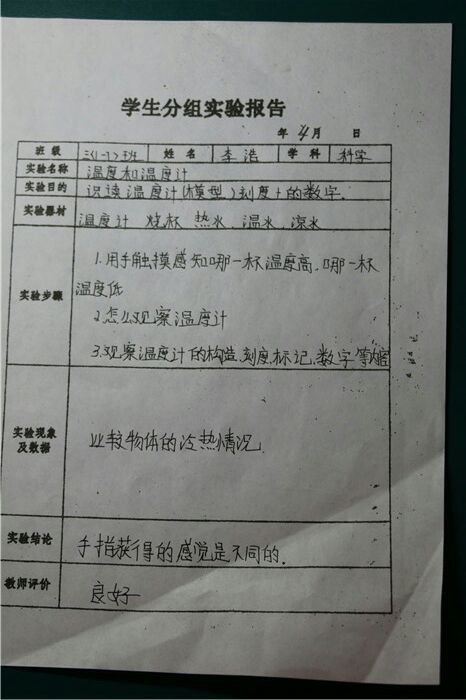 学生分组实验报告
年 4月 日
班级 三(1-1)班 姓名 李浩 学科 科学
实验名称 温度和温度计
实验目的 识读温度计(模型)刻度上的数字.
实验器材 温度计 烧杯 热水 温水 凉水
1.用手触摸感知哪一杯温度高,哪一杯
温度低
实验步骤
2.怎么观察温度计
3.观察温度计的构造,刻度标记,数字等内容
实验现象
及数据
比较物体的冷热情况.
实验结论 手指获得的感觉是不同的.
教师评价 良好